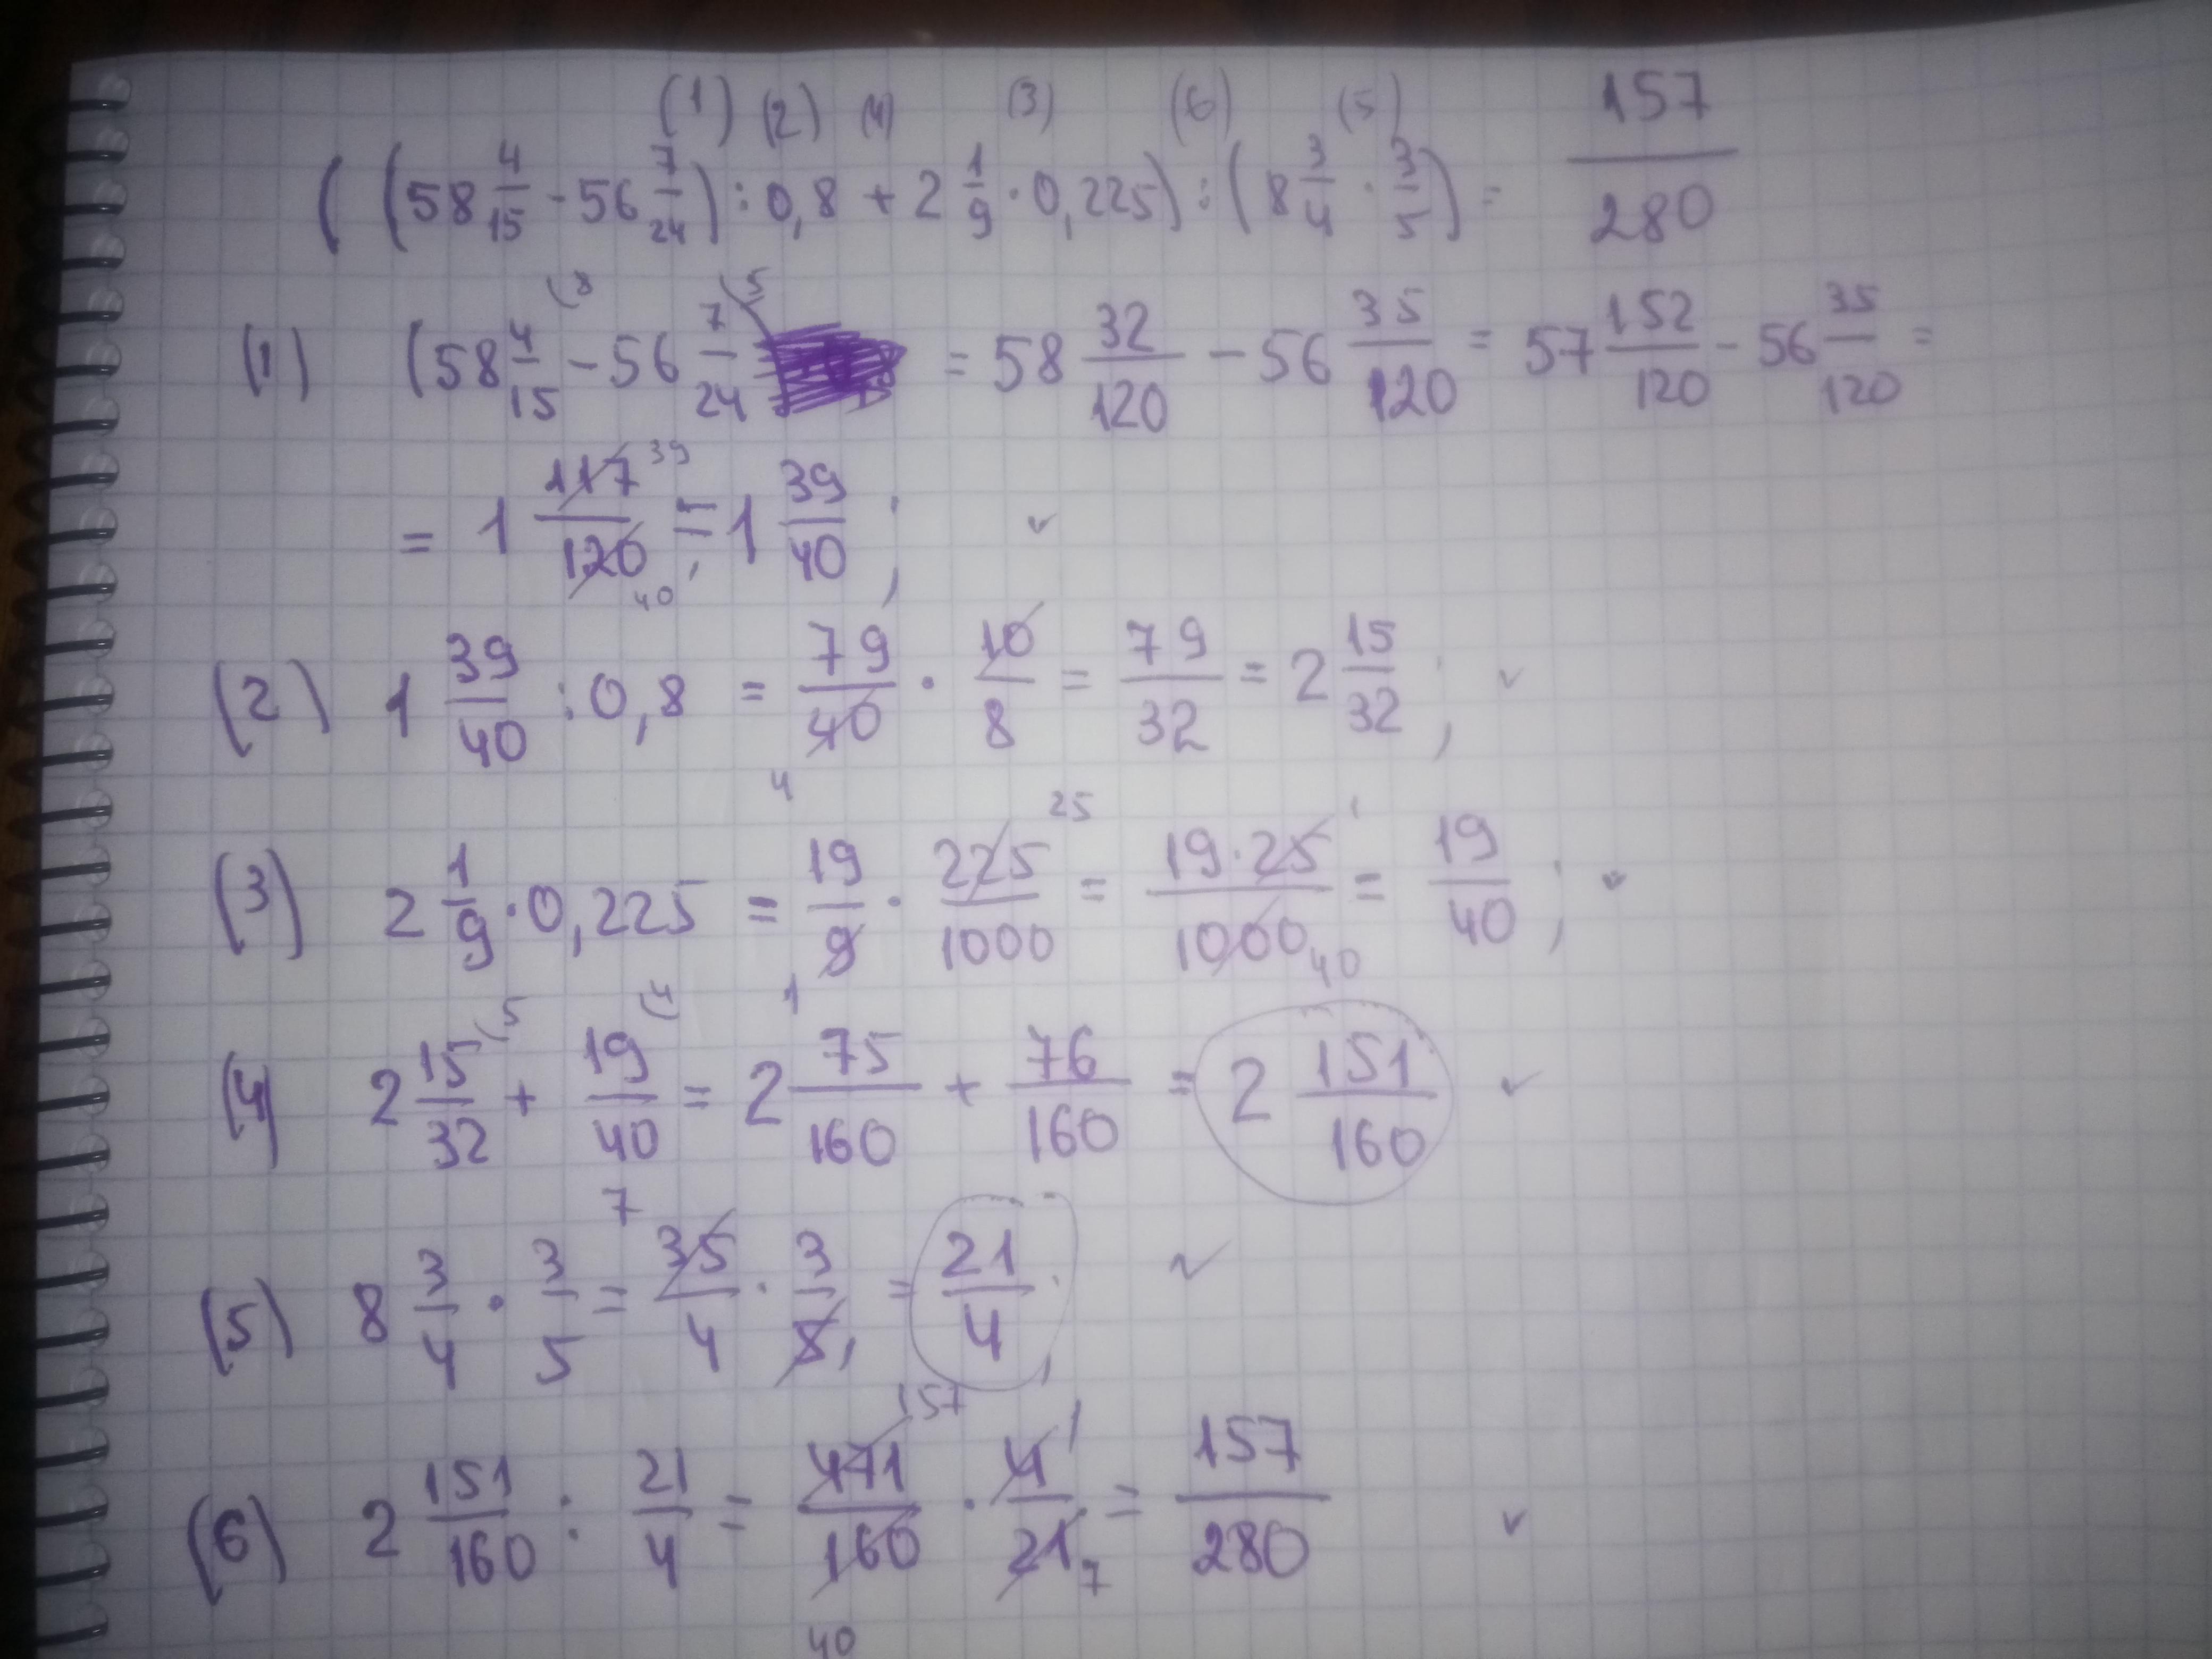 (1) (2) (4) (3) (6) (5)
((58 4/15 - 56 7/24) : 0,8 + 2 1/9 · 0,225) : (8 3/4 · 3/5) = 157/280
(1) (58 4/15 (8 - 56 7/24 (5 = 58 32/120 - 56 35/120 = 57 152/120 - 56 35/120 =
= 1 117 39/120 40 = 1 39/40;
(2) 1 39/40 : 0,8 = 79/40 4 · 10/8 = 79/32 = 2 15/32;
(3) 2 1/9 · 0,225 = 19/9 1 · 225 25/1000 = 19·25 1/1000 40 = 19/40;
(4) 2 15/32 (5 + 19/40 (4 = 2 75/160 + 76/160 = 2 151/160
(5) 8 3/4 · 3/5 = 7 35/4 · 3/5, = 21/4;
(6) 2 151/160 : 21/4 = 471 157/160 40 · 4 1/21 7 = 157/280